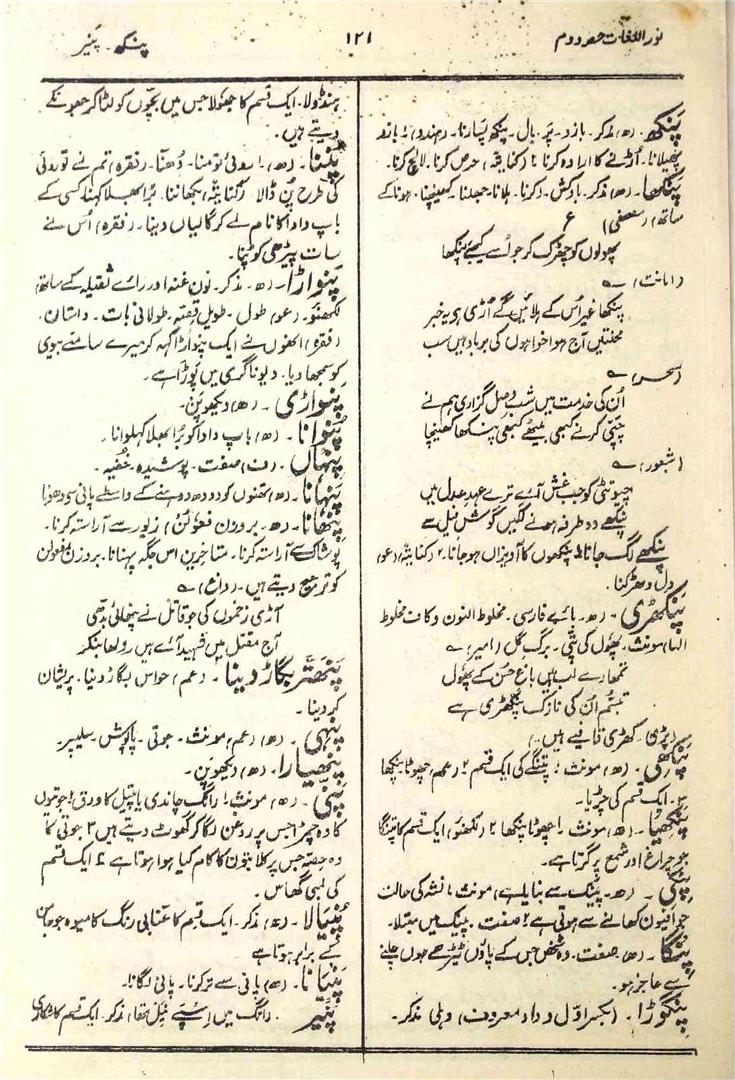 نور اللغات حصہ دوم
۱۲۱
پنکھ۔ پَنیر
پَنکھ۔ (ھ) مذکر۔ بازو۔ پَر۔ بال۔ پنکھ پسارنا۔ (ہندو) ۱ بازو
پھیلانا۔ اُڑنے کا ارادہ کرنا ۲ (کنایۃً) حرص کرنا۔ لالچ کرنا۔
پَنکھا۔ (ھ) مذکر۔ بادکش۔ (کرنا۔ ہلانا۔ جھلنا۔ کھینچنا۔ ہونا کے
ساتھ) (مصحفی) ع
پھولوں کو چھڑک کر جو اُسے کیجئے پنکھا
(امانت) ؎
پنکھا غیر اُس کے ہلائیں گے اُڑی ہے یہ خبر
محنتیں آج ہوا خواہوں کی برباد ہیں سب
(سحر) ؎
اُن کی خدمت میں شبِ وصل گزاری ہم نے
چپّی کرنے کبھی بیٹھے کبھی پنکھا کھینچا
(شعور) ؎
چیونٹی کو جب غش آئے ترے عہدِ عدل میں
پنکھے دو طرفہ ہونے لگیں گوشِ فیل سے
پنکھے لگ جانا ۱ پنکھوں کا آویزاں ہو جانا۔ ۲ (کنایۃً) (عو)
دل دھڑکنا۔
پنکھڑی۔ (ھ۔ بائے فارسی۔ مخلوط النون و کاف مخلوط
الہا) مونث۔ پھول کی پتّی۔ برگِ گل (امیر) ؎
تمھارے لب ہیں باغِ حسن کے پھول
تبسّم اُن کی نازک پنکھڑی ہے
(پڑی۔ کھڑی قافیے ہیں۔)
پَنکھی۔ (ھ) مونث ۱ پتنگے کی ایک قسم ۲ (عم) چھوٹا پنکھا
۳۔ ایک قسم کی چڑیا۔
پنکھیا۔ (ھ) مونث۔ ۱ چھوٹا پنکھا ۲ (لکھنؤ) ایک قسم کا پتنگا
جو چراغ اور شمع پر گرتا ہے۔
پنکی۔ (ھ۔ پینک سے بنایا ہے) مونث ۱ نشہ کی حالت
جو افیون کھانے سے ہوتی ہے ۲ صفت۔ پینک میں مبتلا۔
پنگا۔ (ھ) صفت۔ وہ شخص جس کے پاؤں ٹیڑھے ہوں چلنے
سے عاجز ہو۔
پنگوڑا۔ (بکسر اوّل و واو معروف) دہلی مذکر۔
ہنڈولا۔ ایک قسم کا جھولا جس میں بچّوں کو لٹا کر جھونکے
دیتے ہیں۔
پُننا۔ (ھ) ۱ روئی تومنا۔ دُھننا۔ (فقرہ) تم نے تو روئی
کی طرح پُن ڈالا ۲ (کنایۃً) بکھاننا۔ بُرا بھلا کہنا کسی کے
باپ دادا کا نام لے کر گالیاں دینا۔ (فقرہ) اُس نے
سات پیڑھی کو پُنا۔
پنواڑا۔ (ھ۔ مذکر۔ نون غنہ اور رائے ثقیلہ کے ساتھ)
لکھنؤ۔ (عو) طول۔ طویل قصّہ۔ طولانی بات۔ داستان۔
(فقرہ) انھوں نے ایک پنواڑا کہہ کر میرے سامنے بیوی
کو سمجھا دیا۔ دیوناگری میں پَوڑا ہے۔
پَنواڑی۔ (ھ) دیکھو پَن۔
پُنوانا۔ (ھ) باپ دادا کو بُرا بھلا کہلوانا۔
پنہاں۔ (ف) صفت۔ پوشیدہ۔ خفیہ۔
پنہانا۔ (ھ) تھنوں کو دودھ دوہنے کے واسطے پانی سے دھونا
پنھانا۔ (ھ۔ بروزن فعولن) زیور سے آراستہ کرنا۔
پوشاک سے آراستہ کرنا۔ متاخرین اس جگہ پہنانا۔ بروزن مفعولن
کو ترجیح دیتے ہیں۔ (داغ) ؎
آڑی زخموں کی جو قاتل نے پنھائی بدّھی
آج مقتل میں شہید آئے ہیں دولھا بنکر
پَنچھتّر بگاڑ دینا۔ (عم) حواس بگاڑ دینا۔ پریشان
کر دینا۔
پنہی۔ (ھ) (عم) مونث۔ جوتی۔ پاپوش۔ سلیپر۔
پنہیارا۔ (ھ) دیکھو پَن۔
پنّی۔ (ھ) مونث ۱ رانگ چاندی یا پیتل کا ورق ۲ جوتوں
کا وہ چمڑا جس پر روغن لگا کر گھوٹ دیتے ہیں ۳ جوتی کا
وہ حصّہ جس پر کلابتون کا کام کیا ہوا ہوتا ہے ۴ ایک قسم
کی لمبی گھاس۔
پنیالا۔ (ھ) مذکر۔ ایک قسم کا عنّابی رنگ کا میوہ جو جامن
کے برابر ہوتا ہے
پَنیانا۔ (ھ) پانی سے تر کرنا۔ پانی لگانا۔
پَنیر۔ مذکر۔ ایک قسم کا